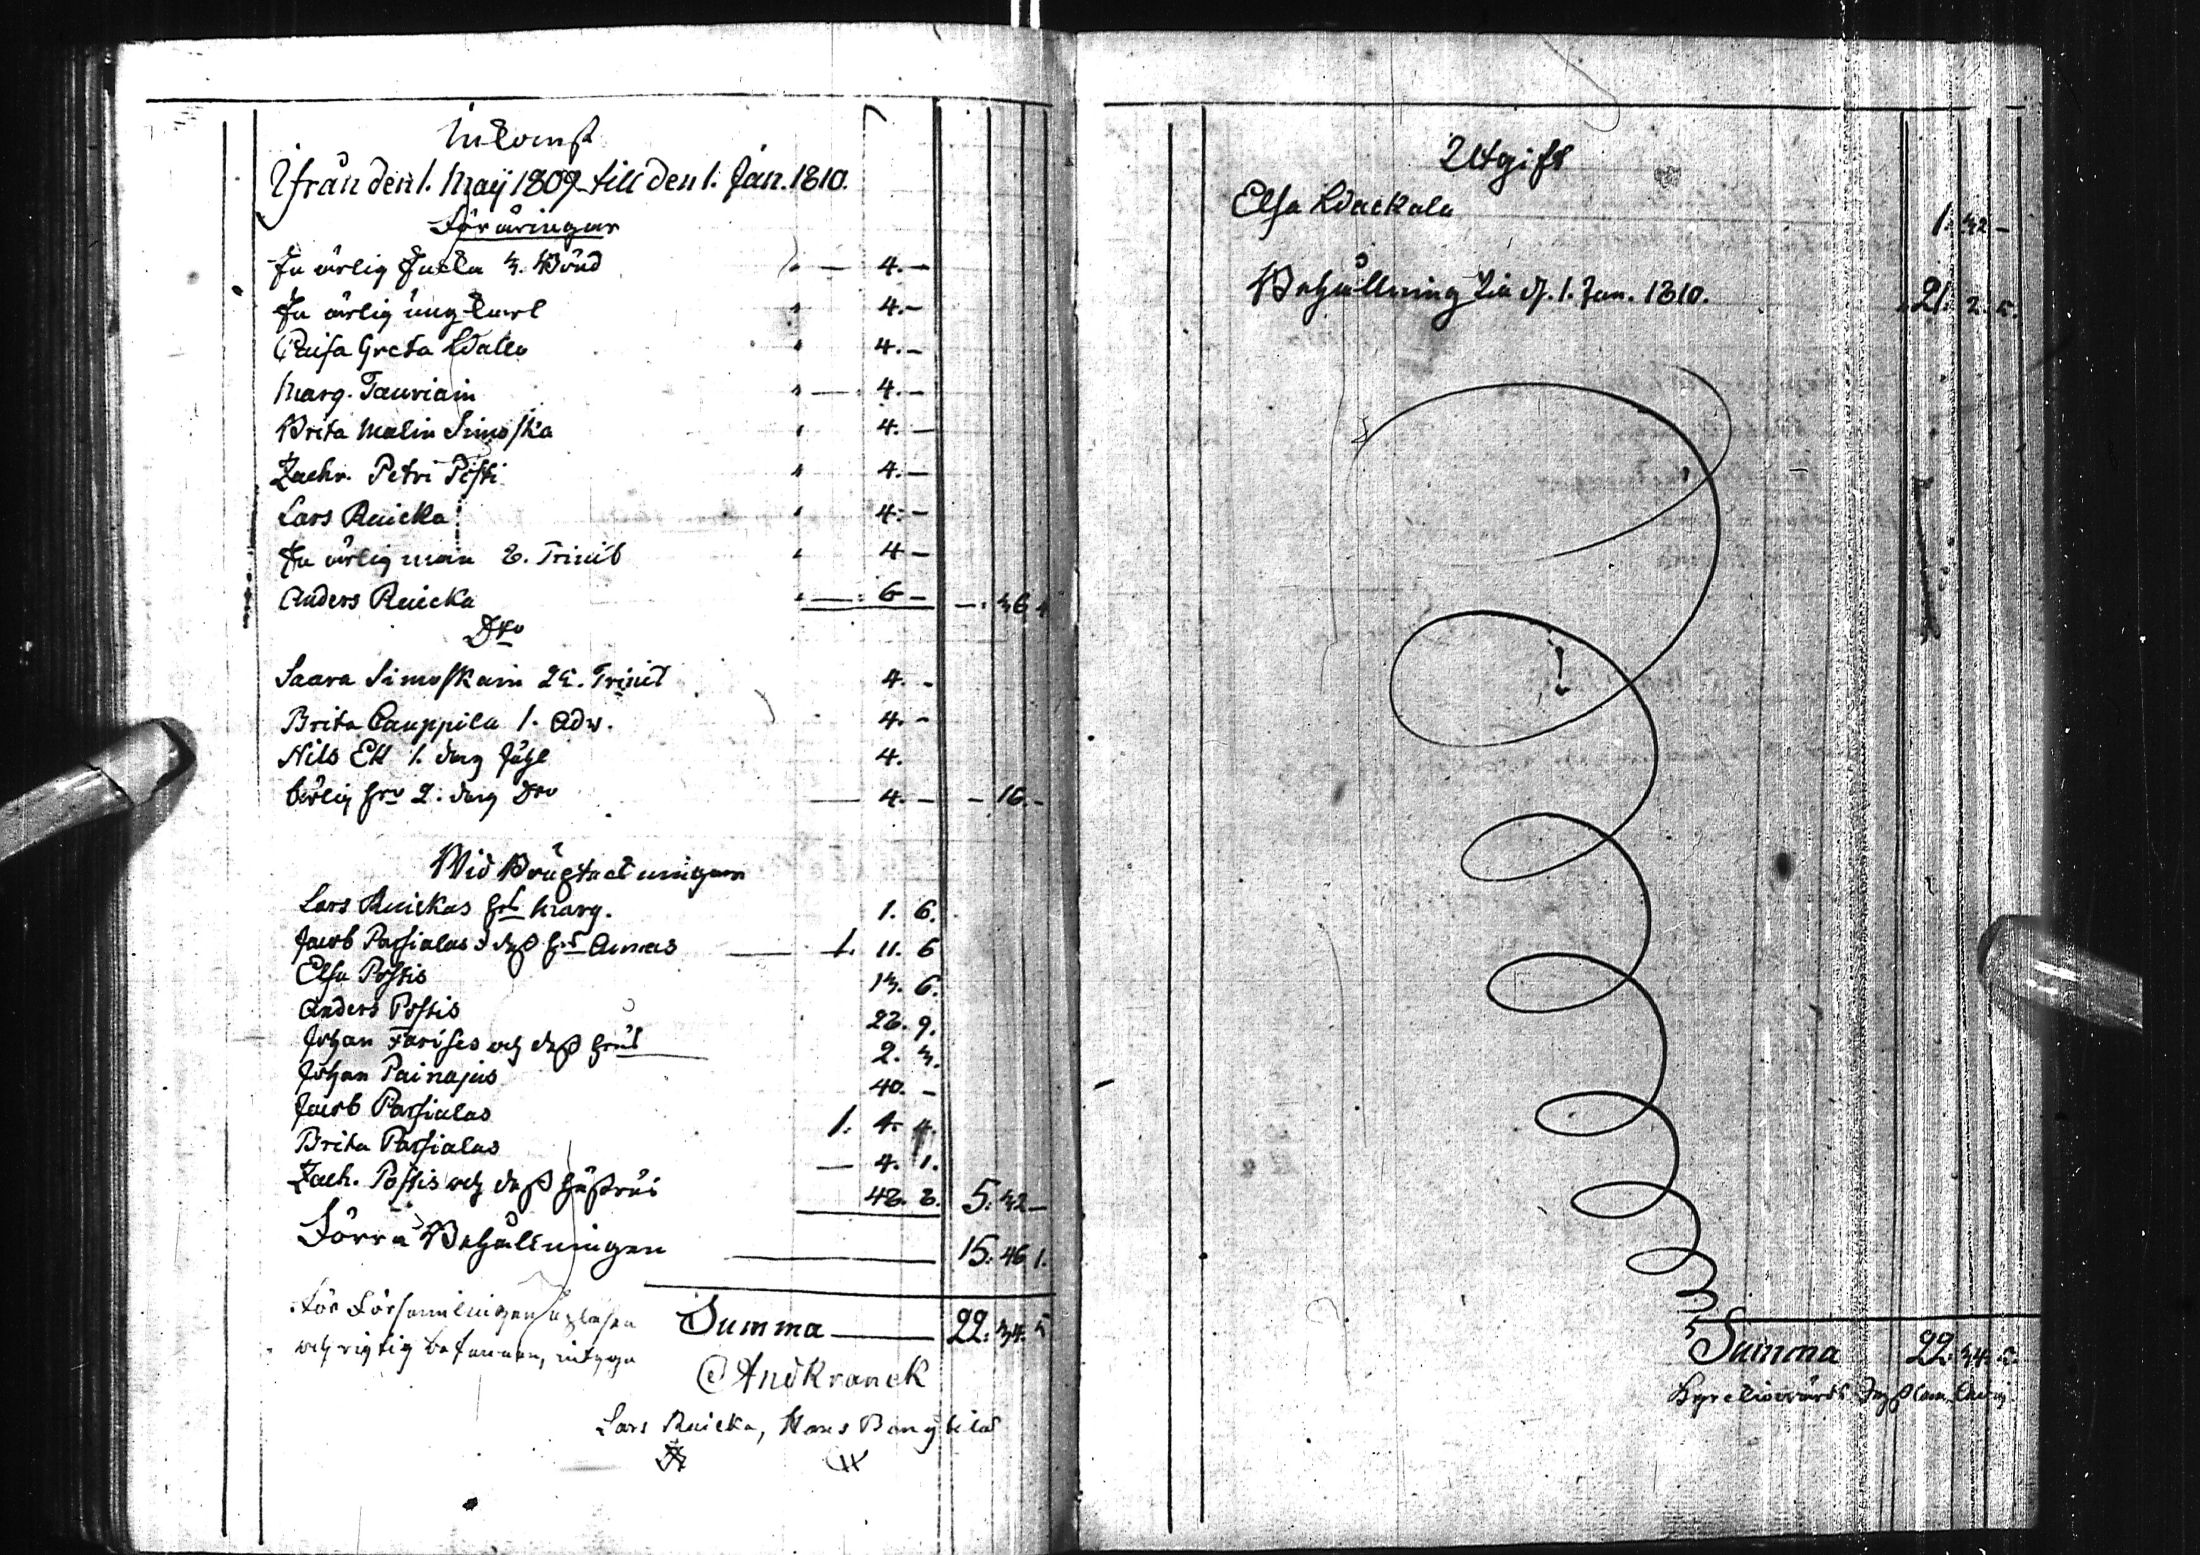 Inkomst
Ifrån den 1. Maij 1809 till den 1. Jan. 1810.
Föräringar
En ärlig Enka 3. Bönd — 4. —
En ärlig ung karl 4. —
Caisa Greta Walle 4. —
Marg. Tauriain — 4. —
Brita Malin Simoska 4. —
Zachr. Petri Posti 4. —
Lars Ruicka 4. —
En ärlig man 8. Trinit 4 —
Anders Ruicka — 6 — —. 36 —
Dto
Saara Simoskain 25. Trinit 4. —
Brita Cauppila 1. Adv. 4. —
Nils Ek 1. dag Juhl 4.
ärlig hro 2. dag Dto — 4. — — 16. —
Wid Brukstaktningar
Lars Ruickas Marg. 1. 6.
Jacob Passialas 1. 11. 6
Elsa Postis 13. 6.
Anders Postis 28. 9.
Johan Farises och dess hust 2. 3.
Johan Painajus 40. —
Jacob Passialas 1. 4. 4.
Brita Passialas — 4. 1.
Zach. Postis och dess hustrus 48. 8. 5. 32 —
Förra Behållningen — 15. 46 1.
Summa — 22. 34. 5
för Församlingen upläsen
och rigtig befunnen, intyga
And Kranck
Lars Ruicka, Hans Bang
Utgift
Elsa Wackala 1. 32 —
Behållning till d. 1. Jan. 1810. 21. 2. 5.
Summa 22. 34. 5.